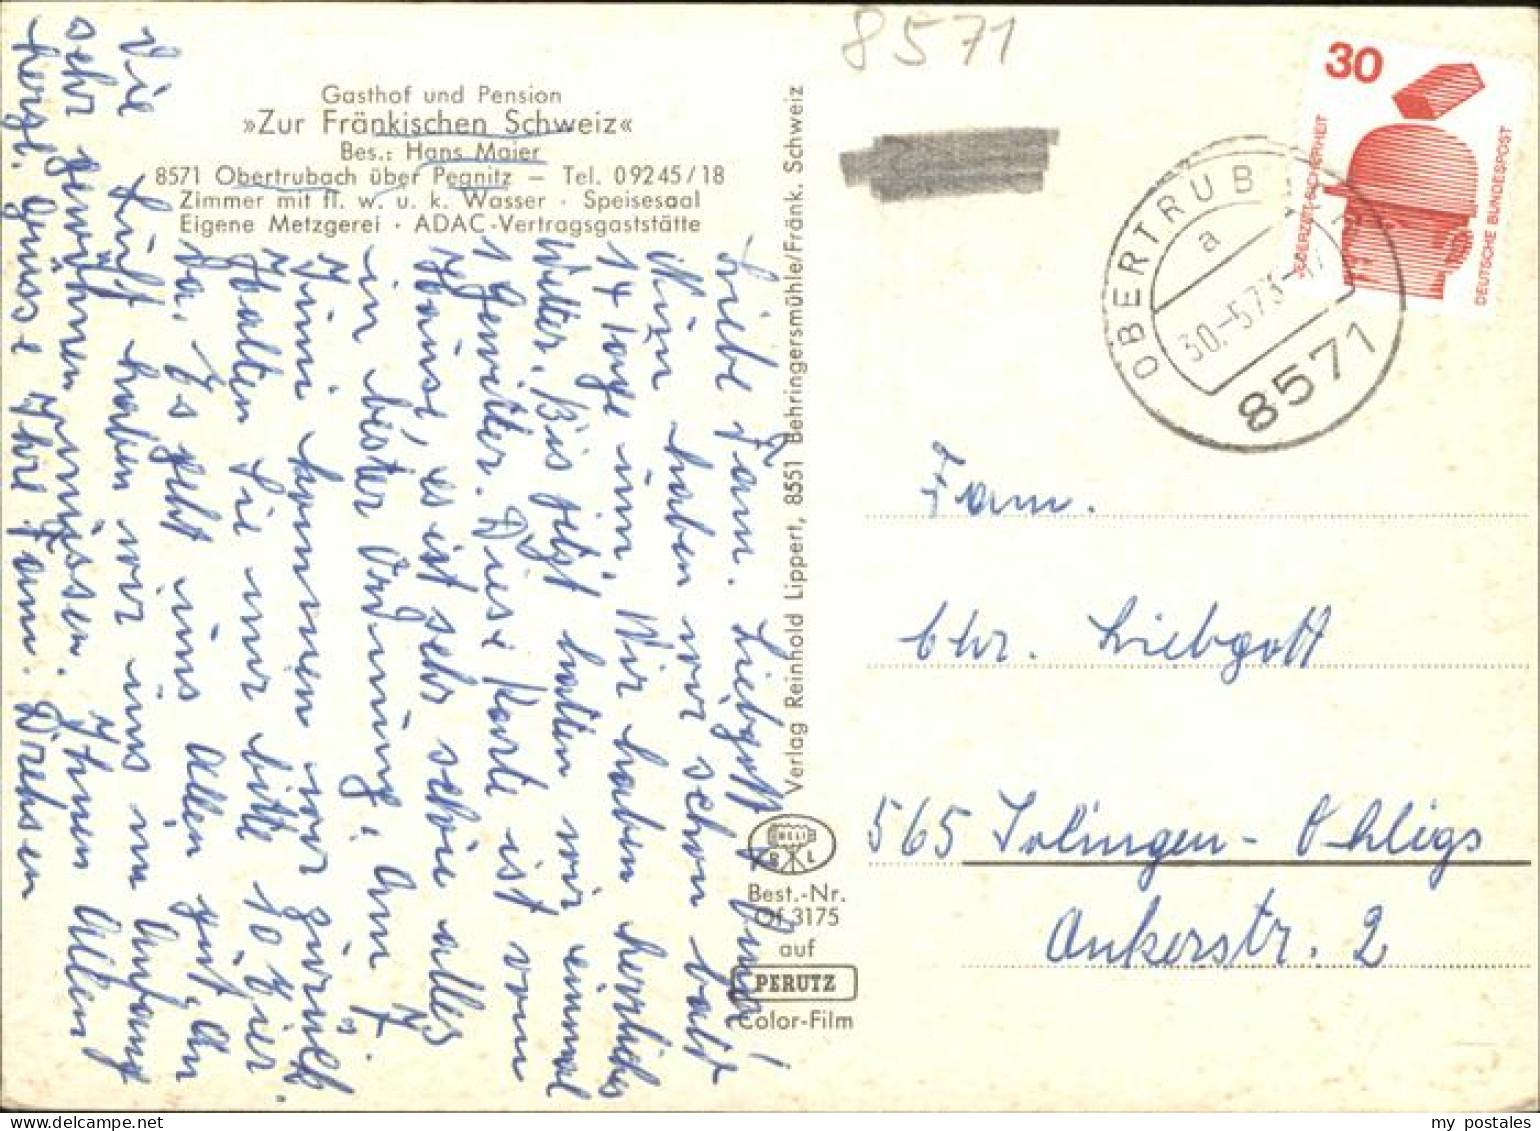 8571
Gasthof und Pension
»Zur Fränkischen Schweiz«
Bes.: Hans Maier
8571 Obertrubach über Pegnitz — Tel. 09245/18
Zimmer mit fl. w. u. k. Wasser · Speisesaal
Eigene Metzgerei · ADAC-Vertragsgaststätte
Liebe Fam. Liebgott
Nun haben wir schon bald
14 Tage um, Wir haben herrliches
Wetter. Bis jetzt hatten wir einmal
1 Gewitter. Diese Karte ist vom
Hause, es ist sehr schön alles
in bester Ordnung. Am 7.
Juni kommen wir zurück
Halten Sie mir bitte 10 Eier.
da, Es geht uns allen gut, An
die Luft haben wir uns am Anfang
sehr gewöhnen müssen. Ihnen allen
herzl. Grüsse Ihre Fam. Drehsen
Verlag Reinhold Lippert, 8551 Behringersmühle/Fränk. Schweiz
HELI
R L
Best.-Nr.
Of 3175
auf
PERUTZ
Color-Film
30
JEDERZEIT SICHERHEIT
DEUTSCHE BUNDESPOST
OBERTRUB
a
30.-5.73
8571
Fam.
Chr. Liebgott
565 Solingen-Ohligs
Ankerstr. 2
my postales